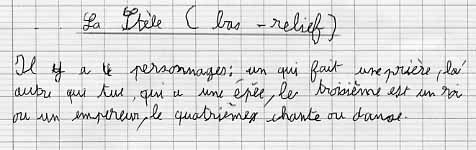 La Stèle ( bas-relief )
Il y a 4 personnages: un qui fait une prière, la
autre qui tue, qui a une épée, le troisième est un roi
ou un empereur, le quatrième chante ou danse.